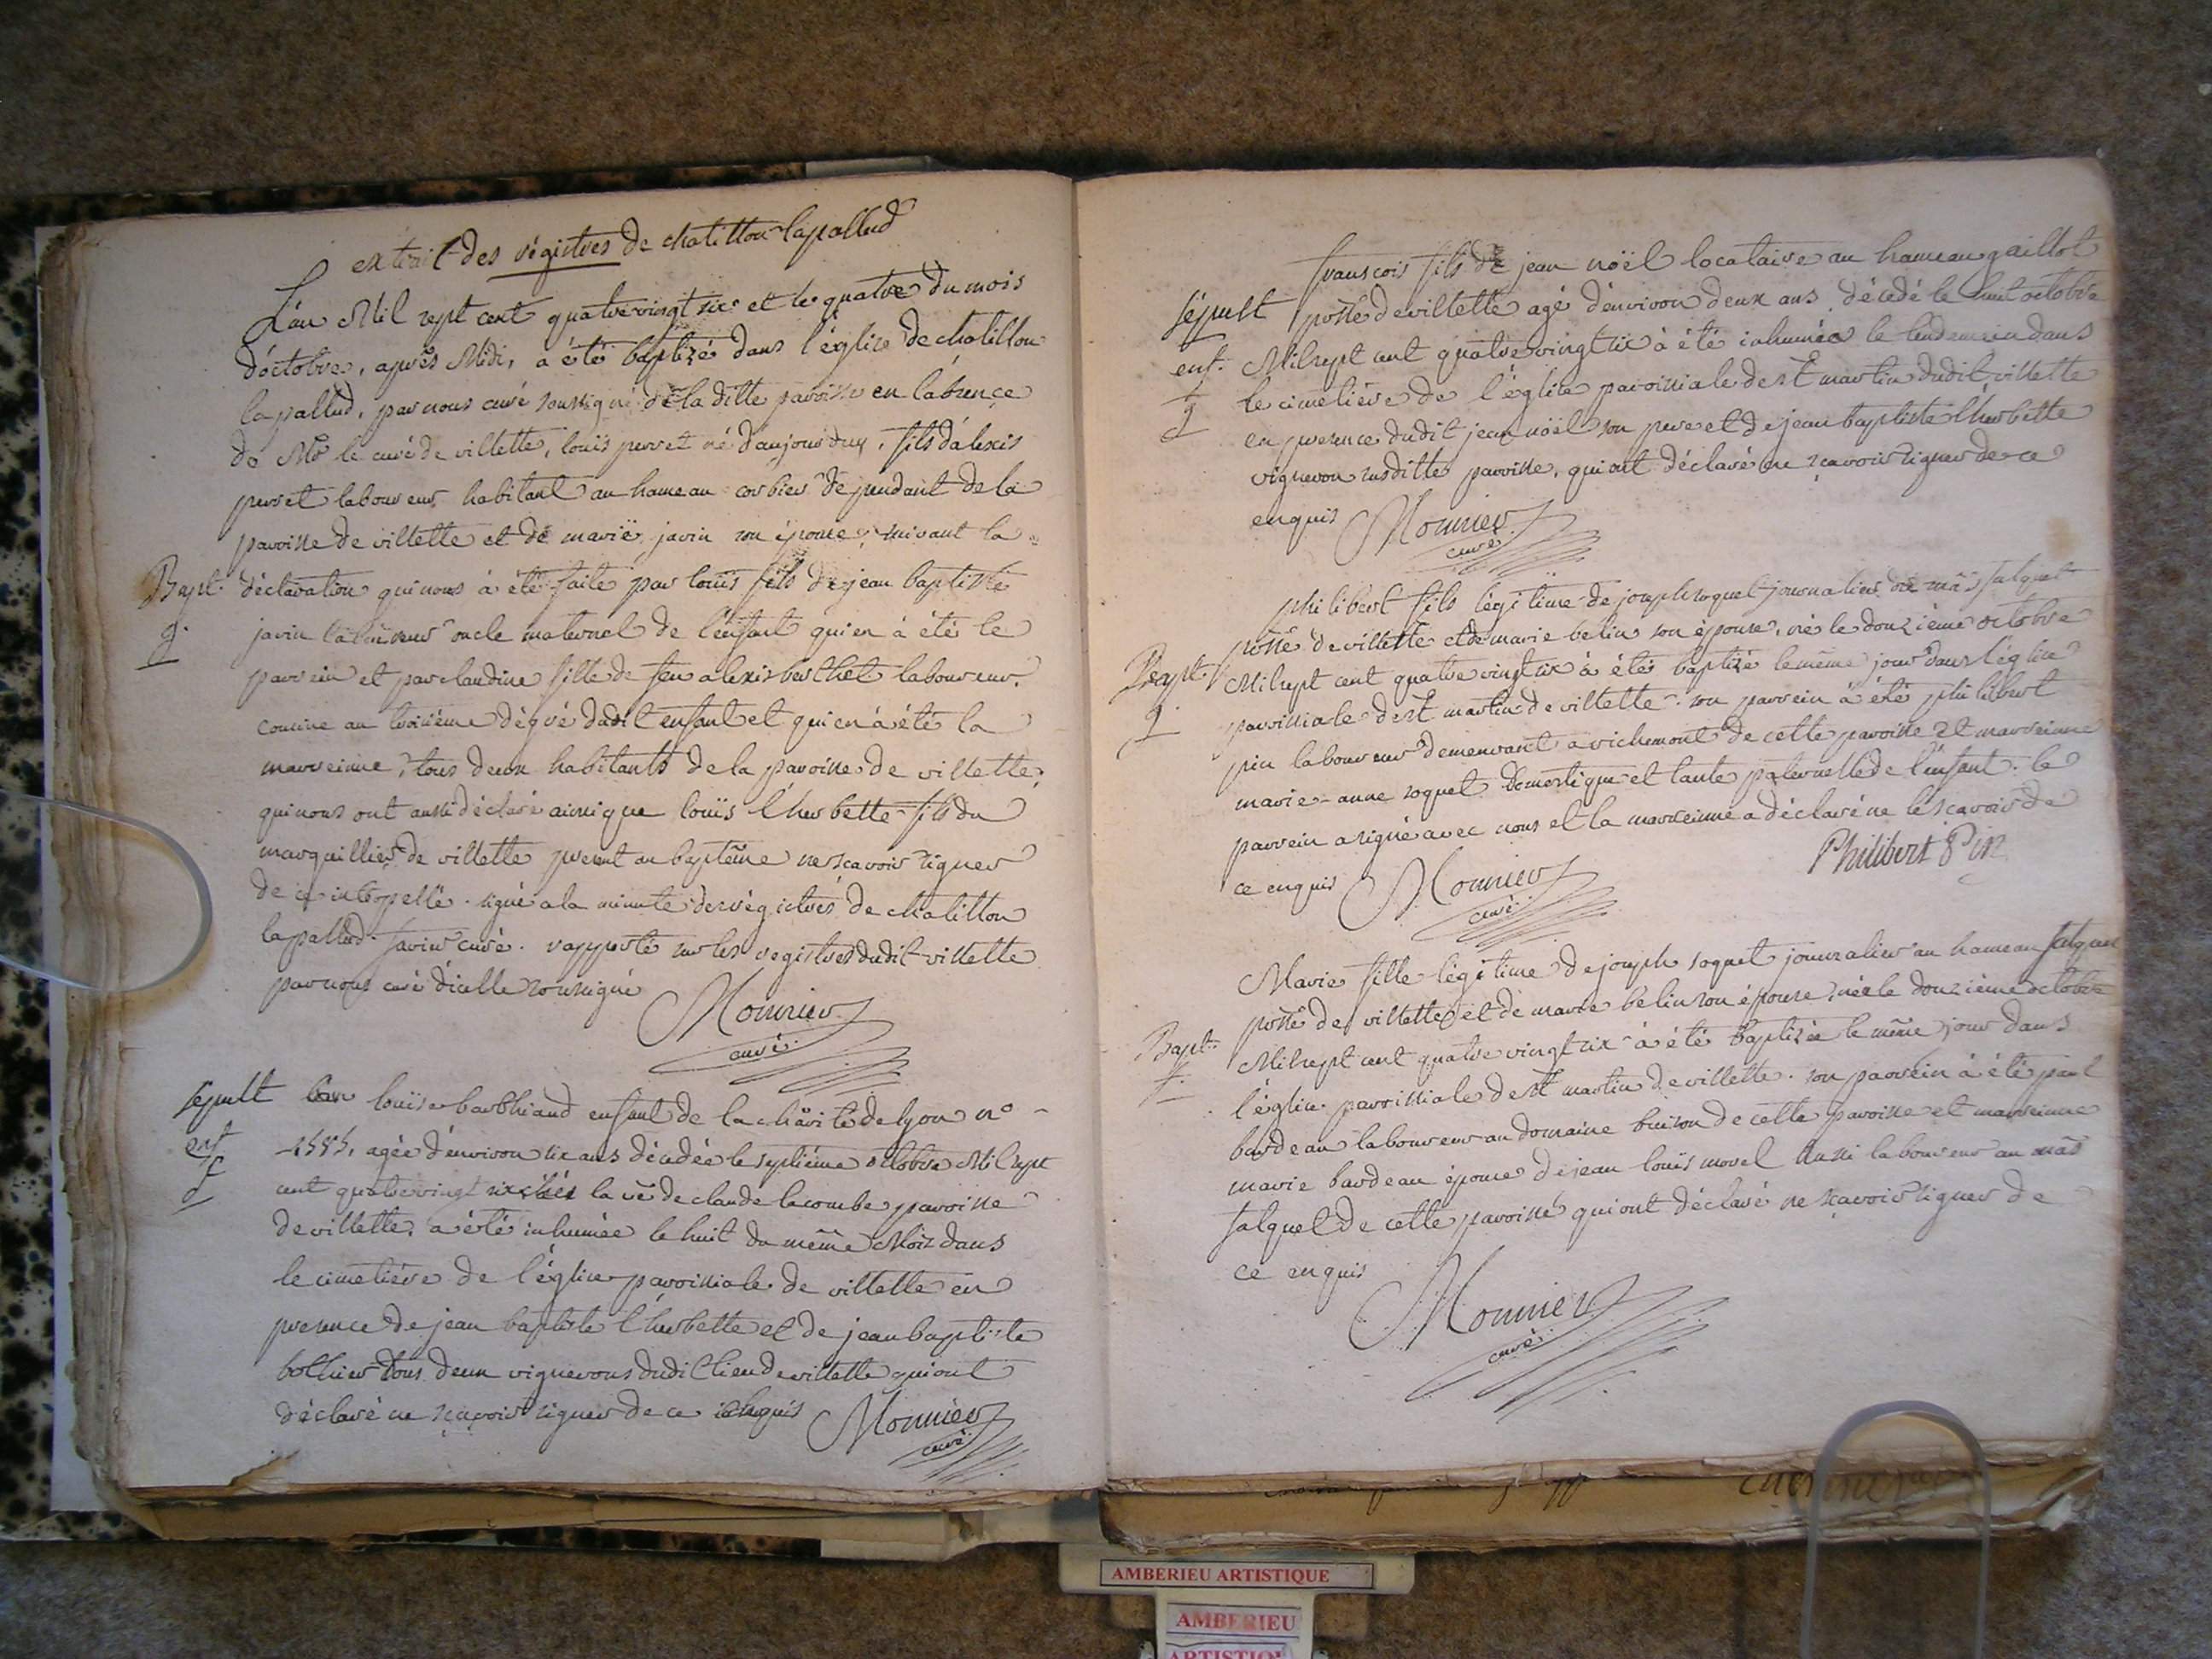 extrait des régistres de chatillon lapallud
L'an Mil sept cent quatrevingt six et le quatre du mois
d'octobre, après Midi, a été baptizé dans l'église de chatillon
lapallud, par nous curé soussigné de la ditte paroisse en l'absence
de Mr le curé de villette, louis perret né d'aujourduy, fils d'alexis
perret laboureur habitant au hameau corbier dépendant de la
paroisse de villette et de marie javin son épouse, suivant la
Bapt. déclaration qui nous à été faite par louis fils de jean baptiste
g. javin laboureur oncle maternel de l'enfant qui en à été le
parrein et par claudine fille de feu alexis berthet laboureur
cousine au troisième dégré dudit enfant et qui en à été la
marreinne, tous deux habitants de la paroisse de villette,
qui nous ont aussi déclaré ainsi que louis l'herbette fils du
marguillier de villette present au baptême ne scavoir signer
de ce interpellé. signé a la minute des régistres de chatillon
lapallud. savin curé. rapporté sur les registres dudit villette
par nous curé d'icelle soussigné
Monnier
curé
sépult louise barbhiand enfant de la charité de lyon no
enf agée d'environ six ans décedée le septième octobre Mil sept
f cent quatrevingt six chés la ve de claude lacombe paroisse
de villette, a été inhumée le huit du même Mois dans
le cimetière de l'église paroissiale de villette en
presence de jean baptiste l'herbette et de jean baptiste
bothier tous deux vignerons dudit lieu de villette qui ont
déclaré ne sçavoir signer de ce enquis Monnier
curé
francois fils de jean noël locataire au hameau gaillot
sépult psse de villette agé d'environ deux ans, décedé le huit octobre
enf. Mil sept cent quatre vingt six à été inhumé le lendemain dans
g le cimetière de l'église paroissiale de st martin dudit villette
en presence dudit jean noël son pere et de jean baptiste l'herbette
vigneron susditte paroisse, qui ont déclaré ne sçavoir signer de ce
enquis Monnier
curé
philibert fils légitime de joseph roquet journalier au mâs falquet
psse de villette et de marie belin son épouse, né le douzième octobre
Bapt. Mil sept cent quatre vingt six à été baptizé le même jour dans l'église
g. paroissiale de st martin de villette. son parrein à été philibert
pin laboureur demeurant a richemont de cette paroisse et marreinne
marie-anne roquet domestique et tante paternelle de l'enfant. le
parrein a signé avec nous et la marreinne a déclaré ne le scavoir de
ce enquis Monnier Philibert Pin
curé
Marie fille légitime de joseph roquet journalier au hameau falquet
psse de villette et de marie belin son épouse, née le douzième octobre
Bapt. Mil sept cent quatre vingt six à été baptizée le même jour dans
f. l'église paroissiale de st martin de villette. son parrein à été paul
bardeau laboureur au domaine buison de cette paroisse et marreinne
marie bardeau épouse de jean louis morel aussi laboureur au mâs
falquet de cette paroisse qui ont déclaré ne sçavoir signer de
ce enquis
Monnier
curé
AMBERIEU ARTISTIQUE
AMBERIEU
ARTISTIQUE